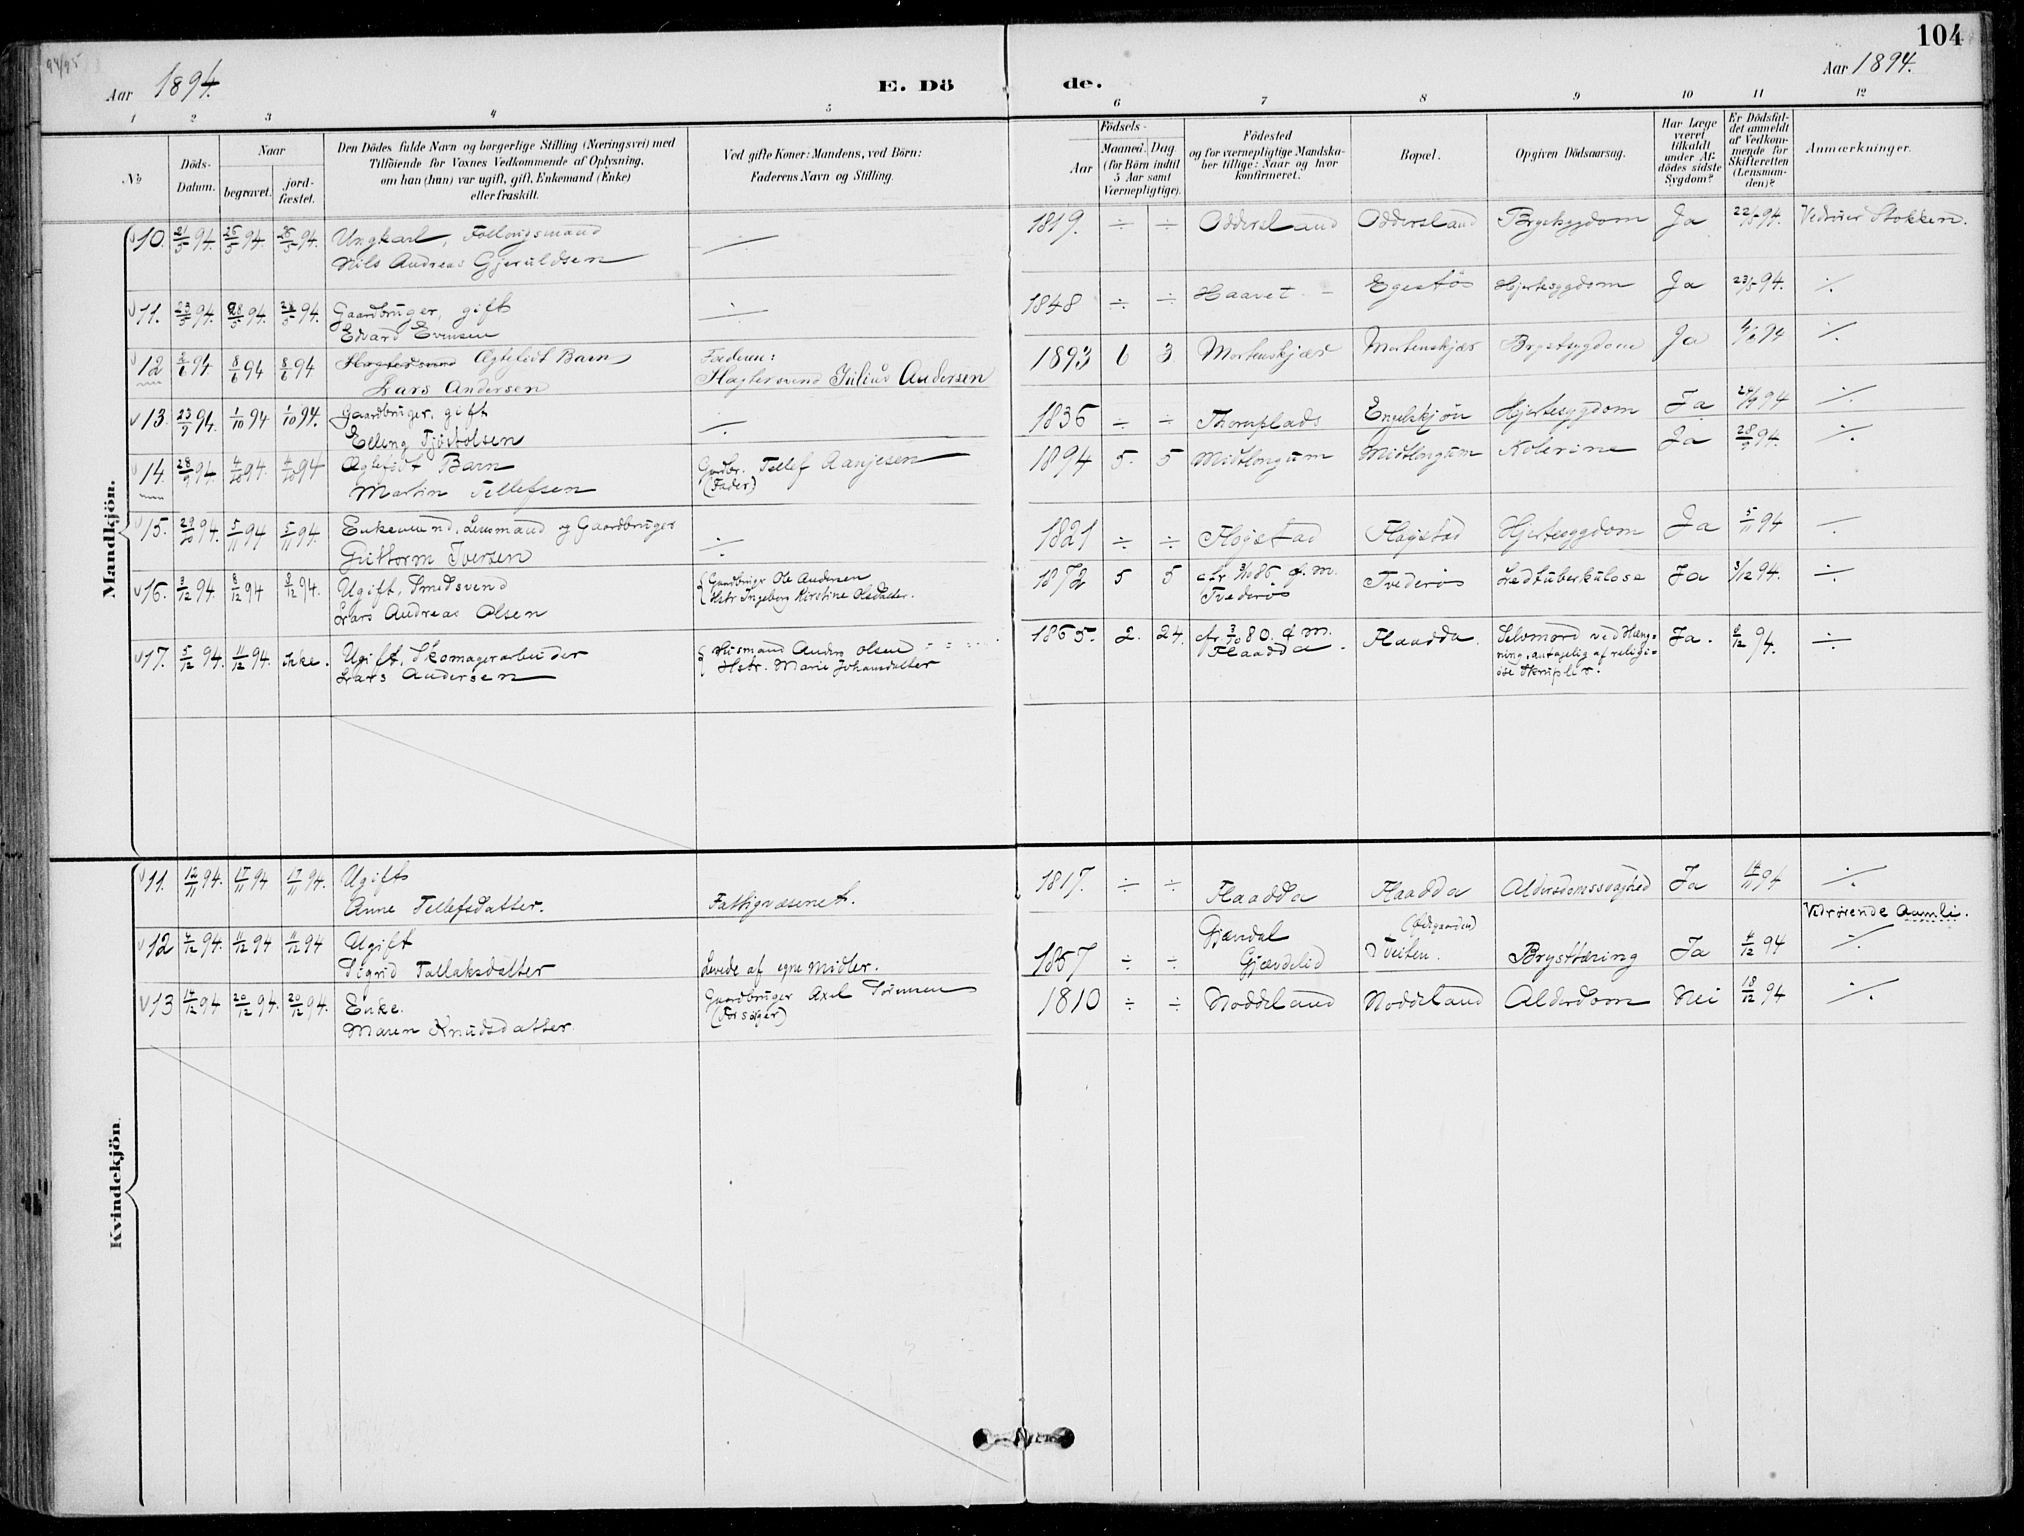 94/95
104
Aar 1894.
E. Dö de.
Aar 1894.
1 2 3 4 5 6 7 8 9 10 11 12
No
Döds-Datum.
Naar
begravet.
jord-fæstet.
Den Dödes fulde Navn og borgerlige Stilling (Næringsvei) med
Tilföiende for Voxnes Vedkommende af Oplysning,
om han (hun) var ugift, gift, Enkemand (Enke)
eller fraskilt.
Ved gifte Koner: Mandens, ved Börn:
Faderens Navn og Stilling.
Födsels-
Aar
Maaned. Dag.
(for Börn indtil
5 Aar samt
Værnepligtige).
Födested
og for værnepligtige Mandska-
ber tillige: Naar og hvor
konfirmeret.
Bopæl.
Opgiven Dödsaarsag.
Har Læge
været
tilkaldt
under Af-
dödes sidste
Sygdom?
Er Dödsfal-
det anmeldt
af Vedkom-
mende for
Skifteretten
(Lensman-
den)?
Anmærkninger.
Mandkjön.
10. 21/5 94. 25/5 94 25/5 94. Ungkarl, Føllougsmand ÷ 1819. ÷ ÷ Oddersland Oddersland Brystsygdom Ja 22/5 94. Vedrører Stokken.
Nils Andreas Gjeruldsen
11. 23/5 94. 28/5 94. 28/5 94. Gaardbruger, gift ÷ 1848 ÷ ÷ Haavet Egestös Hjertesygdom Ja 23/5 94. ÷
Edvard Evensen
12 2/6 94. 8/6 94 8/6 94 Hagtersvend Ægtefødt Barn Faderen: 1893 6 3 Mortenskjær Mortenskjær Brystsygdom Ja 4/6 94 ÷
Lars Andersen Hagtersvend Julius Andersen
13. 23/9 94. 1/10 94 1/10 94. Gaardbruger, gift ÷ 1836 ÷ ÷ Thornplads Engelskjøn Hjertesygdom Ja 24/9 94 ÷
Elling Tjöstolsen
14. 28/9 94. 4/10 94. 4/10 94 Ægtefødt Barn Gaardbr. Tellef Aanjesen 1894 5. 5 Midtlongum Midtlongum Kolerine Ja 28/9 94. ÷
Martin Tellefsen (Fader)
15. 29/10 94. 5/11 94 5/11 94. Enkemand, Lensmand og Gaardbruger ÷ 1821 ÷ ÷ Fløistad Fløistad Hjertesygdom Ja 5/11 94 ÷
Guttorm Iversen
16. 3/12 94. 8/12 94 8/12 94. Ugift, Smedsvend Gaardbruger Ole Andersen 1872 5 5 cfr 3/10 86 f. m. Tvederøs Ledtuberkulose Ja 3/12 94. ÷
Lars Andreas Olsen Hstr Ingeborg Kirstine Olsdatter. Tvederøs
17. 5/12 94. 11/12 94. ikke. Ugift, Skomagerarbeider Husmand Anders Olsen 1865. 2. 24. cfr. 3/10 80. f m. Flaadda. Selvmord ved Hæng- Ja. 6/12 94. ÷
Lars Andersen Hstr. Marie Johansdatter Flaadda ning, antagelig af religi-
øse Skrupler.
Kvindekjön.
11. 12/11 94. 17/11 94 17/11 94. Ugift 1817. ÷ ÷ Flaadda Flaadda Alderdomssvaghed Ja 14/11 94 ÷
Anne Tellefsdatter. Fattigvæsenet.
12 4/12 94. 11/12 94 11/12 94 Ugift Gjævdal Vedrørende Aamli.
Sigrid Tallaksdatter Levede af egne Midler. 1857 ÷ ÷ Gjævdelid Tveiten. Brysttæring Ja 4/12 94 ÷
13 14/12 94 20/12 94. 20/12 94. Enke. Gaardbruger Axel Sörensen 1810 ÷ ÷ Noddeland Noddeland Alderdom Nei 18/12 94 ÷
Maren Knudsdatter (Forsørger)